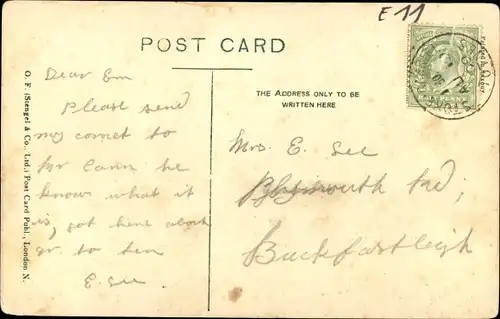 E 11
POST CARD
Dear Em
Please send
my cornet to
Mr Cann he
knows what it
is, got here about
qr. to ten
E. See
THE ADDRESS ONLY TO BE
WRITTEN HERE
Mrs. E. See
Plymouth Rd;
Buckfastleigh
O. F. (Stengel & Co., Ltd.) Post Card Publ., London N.